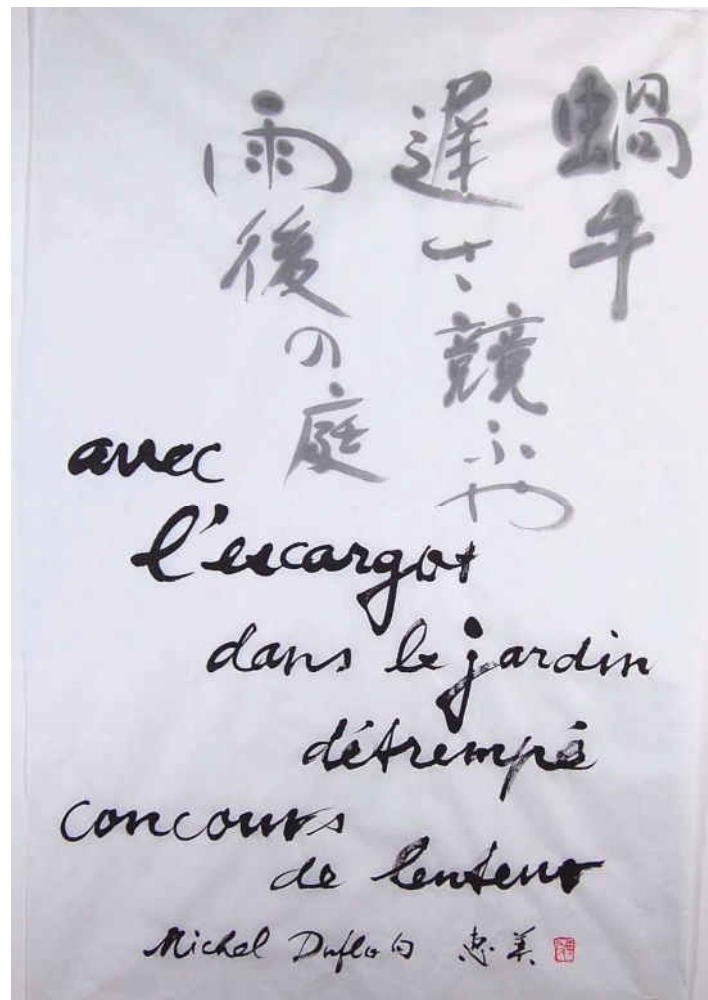 蝸牛
遅さ競ふや
雨後の庭
avec
l'escargot
dans le jardin
détrempé
concours
de lenteur
Michel Duflo句 恵美